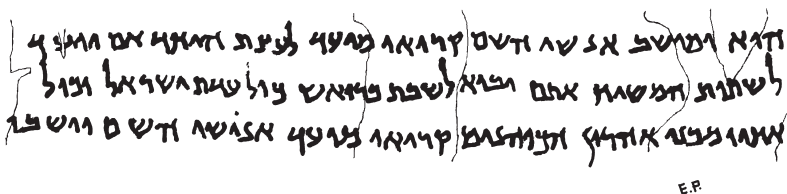 הוא מושב אנשי השם קריאי מועד לעצת היחד אם
לשתות המשיח אתם יבוא לשבת ברואש כול עדת ישראל וכול
אחיו מבני אהרון הכוהנים קריאי מועד אנושי השם וישבו
E.P.